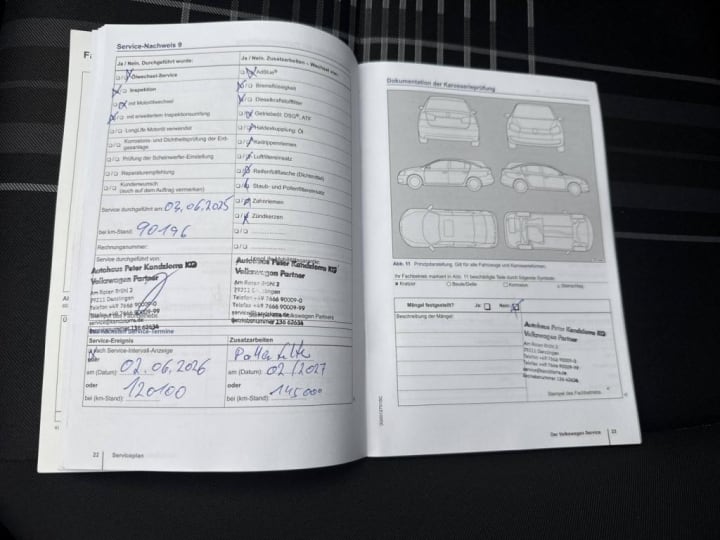 Service-Nachweis 9
Ja / Nein. Durchgeführt wurde:
Ölwechsel-Service
Inspektion
mit Motorölwechsel
mit erweitertem Inspektionsumfang
LongLife Motoröl verwendet
Korrosions- und Dichtheitsprüfung der Erdgasanlage
Prüfung der Scheinwerfer-Einstellung
Reparaturempfehlung
Kundenwunsch
(auch auf dem Auftrag vermerken)
Service durchgeführt am: 03.06.2025
bei km-Stand: 90196
Rechnungsnummer:
Service durchgeführt von:
Autohaus Peter Kandziorra KG
Volkswagen Partner
Am Roten Brühl 2
79211 Denzlingen
Telefon +49 7666 90009-0
Telefax +49 7666 90009-99
Ja / Nein. Zusatzarbeiten – Wechsel von:
AdBlue®
Bremsflüssigkeit
Dieselkraftstofffilter
Getriebeöl: DSG®, ATF
Haldexkupplung: Öl
Keilrippenriemen
Luftfiltereinsatz
Reifenfüllflasche (Dichtmittel)
Staub- und Pollenfiltereinsatz
Zahnriemen
Zündkerzen
Autohaus Peter Kandziorra KG
Volkswagen Partner
Am Roten Brühl 2
79211 Denzlingen
Telefon +49 7666 90009-0
Telefax +49 7666 90009-99
Betriebsnummer 136 62636
Service-Ereignis
nach Service-Intervall-Anzeige
oder
am (Datum): 02.06.2026
oder
bei (km-Stand): 120100
Zusatzarbeiten
Pollenfilter
am (Datum): 02/2027
oder
bei (km-Stand): 145000
22 Serviceplan
Dokumentation der Karosserieprüfung
Abb. 11 Prinzipdarstellung. Gilt für alle Fahrzeuge und Karosserieformen.
Ihr Fachbetrieb markiert in Abb. 11 beschädigte Teile durch folgende Symbole:
Kratzer Beule/Delle Korrosion Steinschlag
Mängel festgestellt? Ja: Nein:
Beschreibung der Mängel:
Autohaus Peter Kandziorra KG
Volkswagen Partner
Am Roten Brühl 2
79211 Denzlingen
Telefon +49 7666 90009-0
Telefax +49 7666 90009-99
Betriebsnummer 136 62636
Stempel des Fachbetriebs
Der Volkswagen Service 23